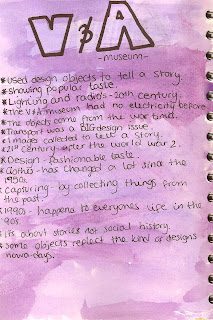 V & A
-museum-
* used design objects to tell a story.
* showing popular taste.
* Lighting and radio's - 20th century.
* The V&A museum had no electricity before
* The objects come from the war times.
* Transport was a BIG design issue.
* Images collected to tell a story.
* 21st century - after the world war 2.
* Design - fashionable taste.
* Clothes - has changed a lot since the
1950s.
* capturing - by collecting things from
the past.
* 1990s - happens to everyones life in the
90s.
* it's about stories not social history.
* some objects reflect the kind of designs
nowa-days.